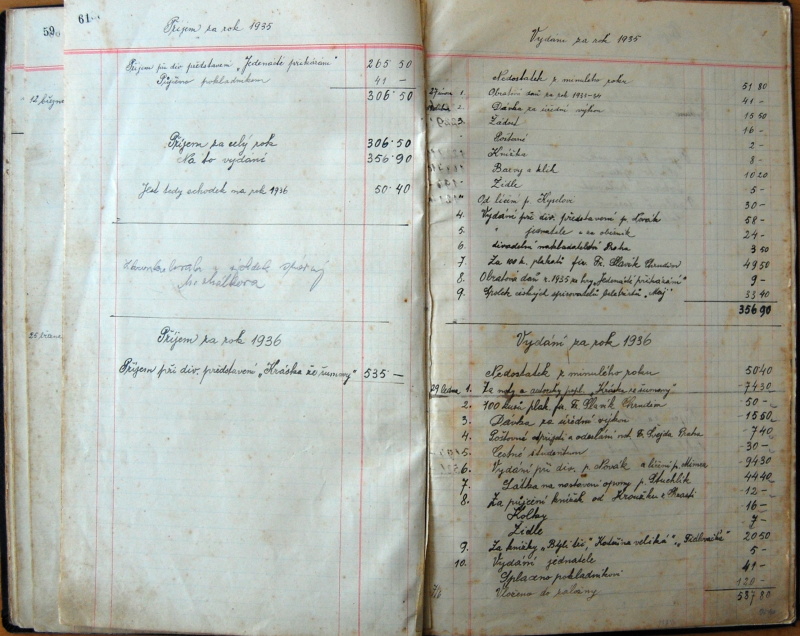 59
61
12 března
25 března
Příjem za rok 1935
Příjem při div. představení „Jedenácté přikázání" 265 50
Půjčeno pokladníkem 41 —
306 50
Příjem za celý rok 306 50
Na to vydání 356 90
Jest tedy schodek na rok 1936 50 40
Příjem za rok 1936
Příjem při div. představení „Kráska ze šumavy" 535 —
Vydání za rok 1935
Nedostatek z minulého roku 51 80
27 února 1. Obratová daň za rok 1930-34 41 —
2. Dávka za úřední výkon 15 50
3. Žádost 16 —
Poštovné 2 —
Knížka 8 —
Barvy a klih 10 20
Židle 5 —
Od líčení p. Kyselovi 30 —
4. Vydání při div. představení p. Novák 58 —
5. " jednatele a za oběžník 24 —
6. divadelní nakladatelství Praha 3 50
7. Za 100 k. plakátů fir. Fr. Slavík Chrudim 49 50
8. Obratová daň z r. 1935 za hry „Jedenácté přikázání" 9 —
9. Spolek českých spisovatelů beletristů „Máj" 33 40
356 90
Vydání za rok 1936
Nedostatek z minulého roku 50 40
29 ledna 1. Za noty a autorský popl. „Kráska ze šumavy" 74 30
2. 100 kusů plak. fa. Fr. Slavík Chrudim 50 —
3. Dávka za úřední výkon 15 50
4. Poštovné a odeslání Fr. Švejda Praha 7 40
5. studentům 30 —
6. Vydání při div. p. Novák a líčení p. 94 30
7. Látka na nastavení opony p. Stuchlík 44 40
8. Za půjčení knížek od Kroužku z 12 —
Kolky 16 —
Židle 7 —
9. Za knížky „Býti či," „veliká" „Fidlovačka" 20 50
10. Vydání jednatele 5 —
Splaceno pokladníkovi 41 —
Vloženo do záložny 120 —
587 80